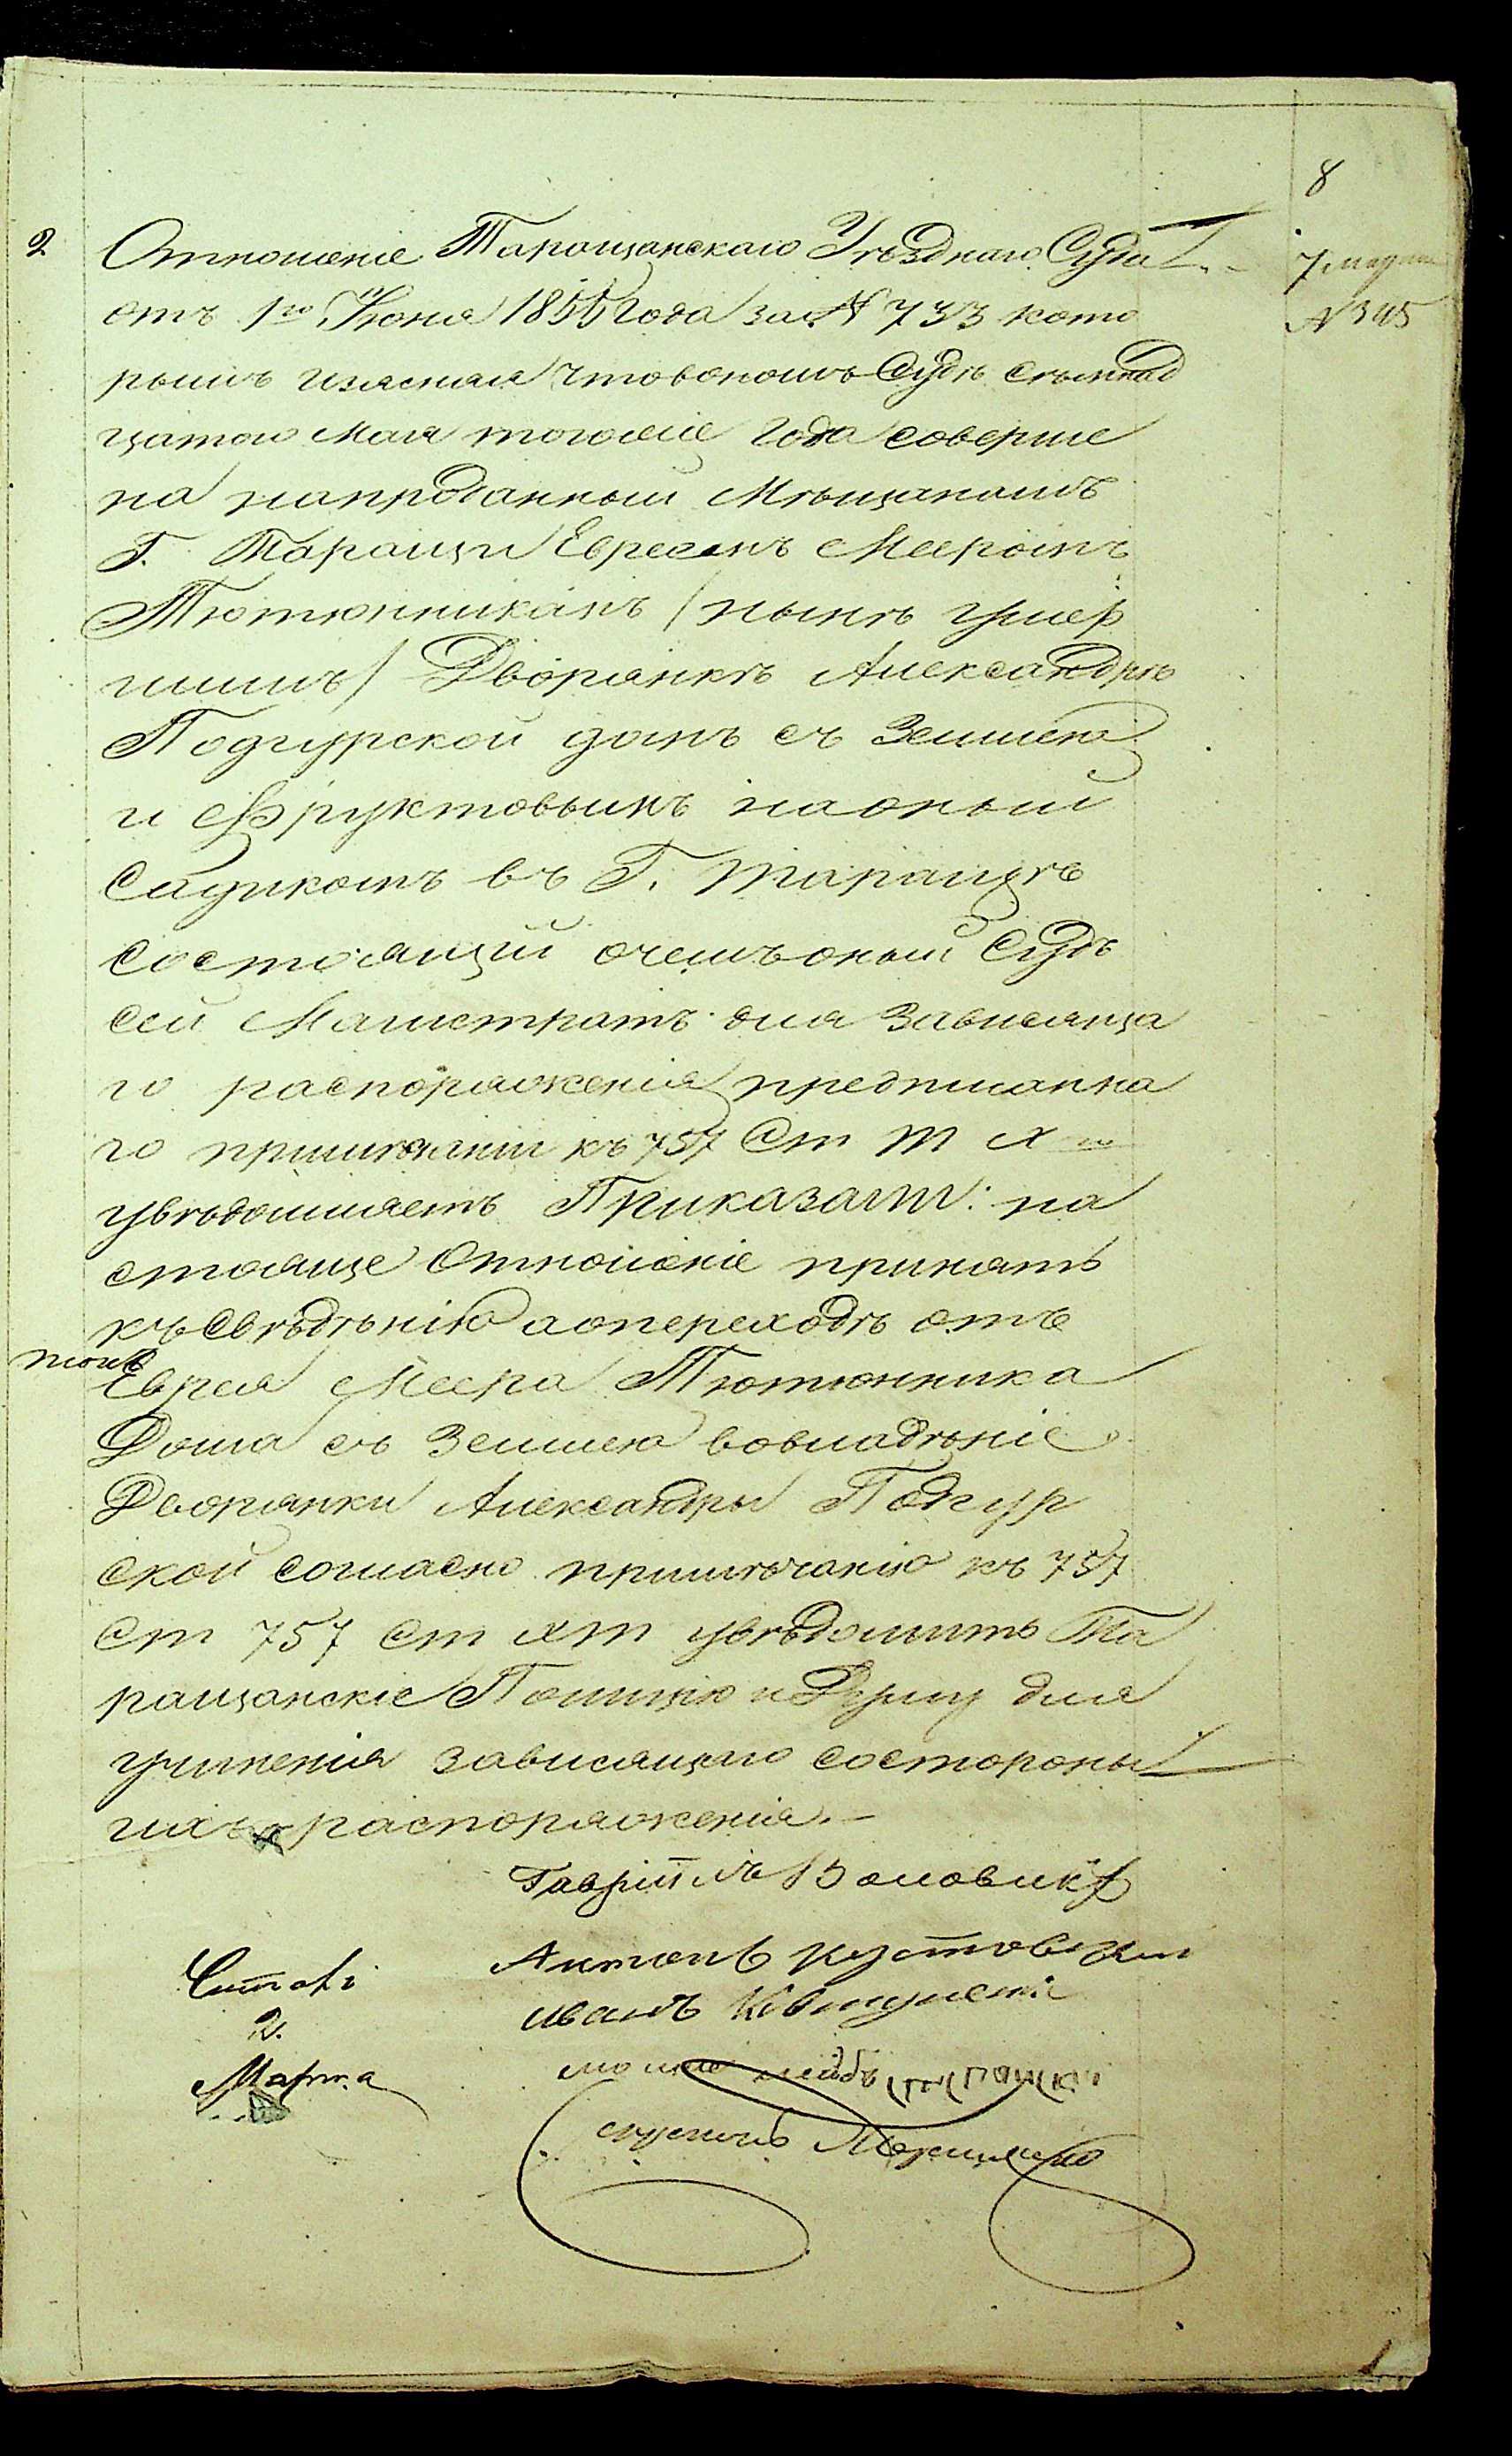 8
2. Отношеніе Таращанскаго Уѣзднаго Суда
7 марта
отъ 1го Іюня 1855 года за № 733 кото
№ 345
рымъ изясняя чтовономъ Судѣ
цатого Мая тогоже года соверше
на напроданный Мѣщаномъ
Г. Таращи Евреемъ Мееромъ
Тютюнникамъ /нынѣ умер
шимъ/ Дворянкѣ Александрѣ
Подгурской домъ съ Землею
и Фруктовымъ наоный
садикомъ въ Г. Таращѣ
состоящій очемъ оный Судъ
сей Магистратъ для зависяща
го распоряженія предписанна
го къ 757 Ст Т Х
увѣдомляетъ Приказали: на
стояще Отношеніе принять
къ свѣдѣнію аопереходѣ отъ
Еврея Меера Тютюнника
Дома съ Землею вовладѣніе
Дворянки Александры Подгур
ской согласно примѣчанію къ 757
Ст 757 Ст Хт увѣдомить Та
ращанскіе Полицію и Думу для
учиненія зависящаго состороны
ихъ распоряженія.—
Гавріилъ Воловикъ
Антонъ
Читалъ
Иванъ
2.
Марта